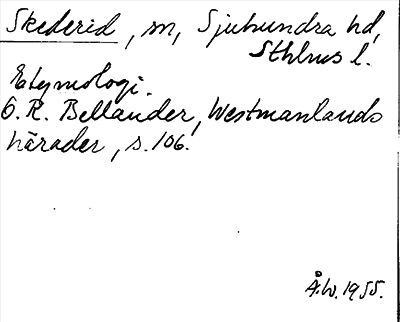 Skederid, sn, Sjuhundra hd,
Sthlms l.
Etymologi.
O. R. Bellander, Westmanlands
härader, s. 106.
Å.W. 1955.